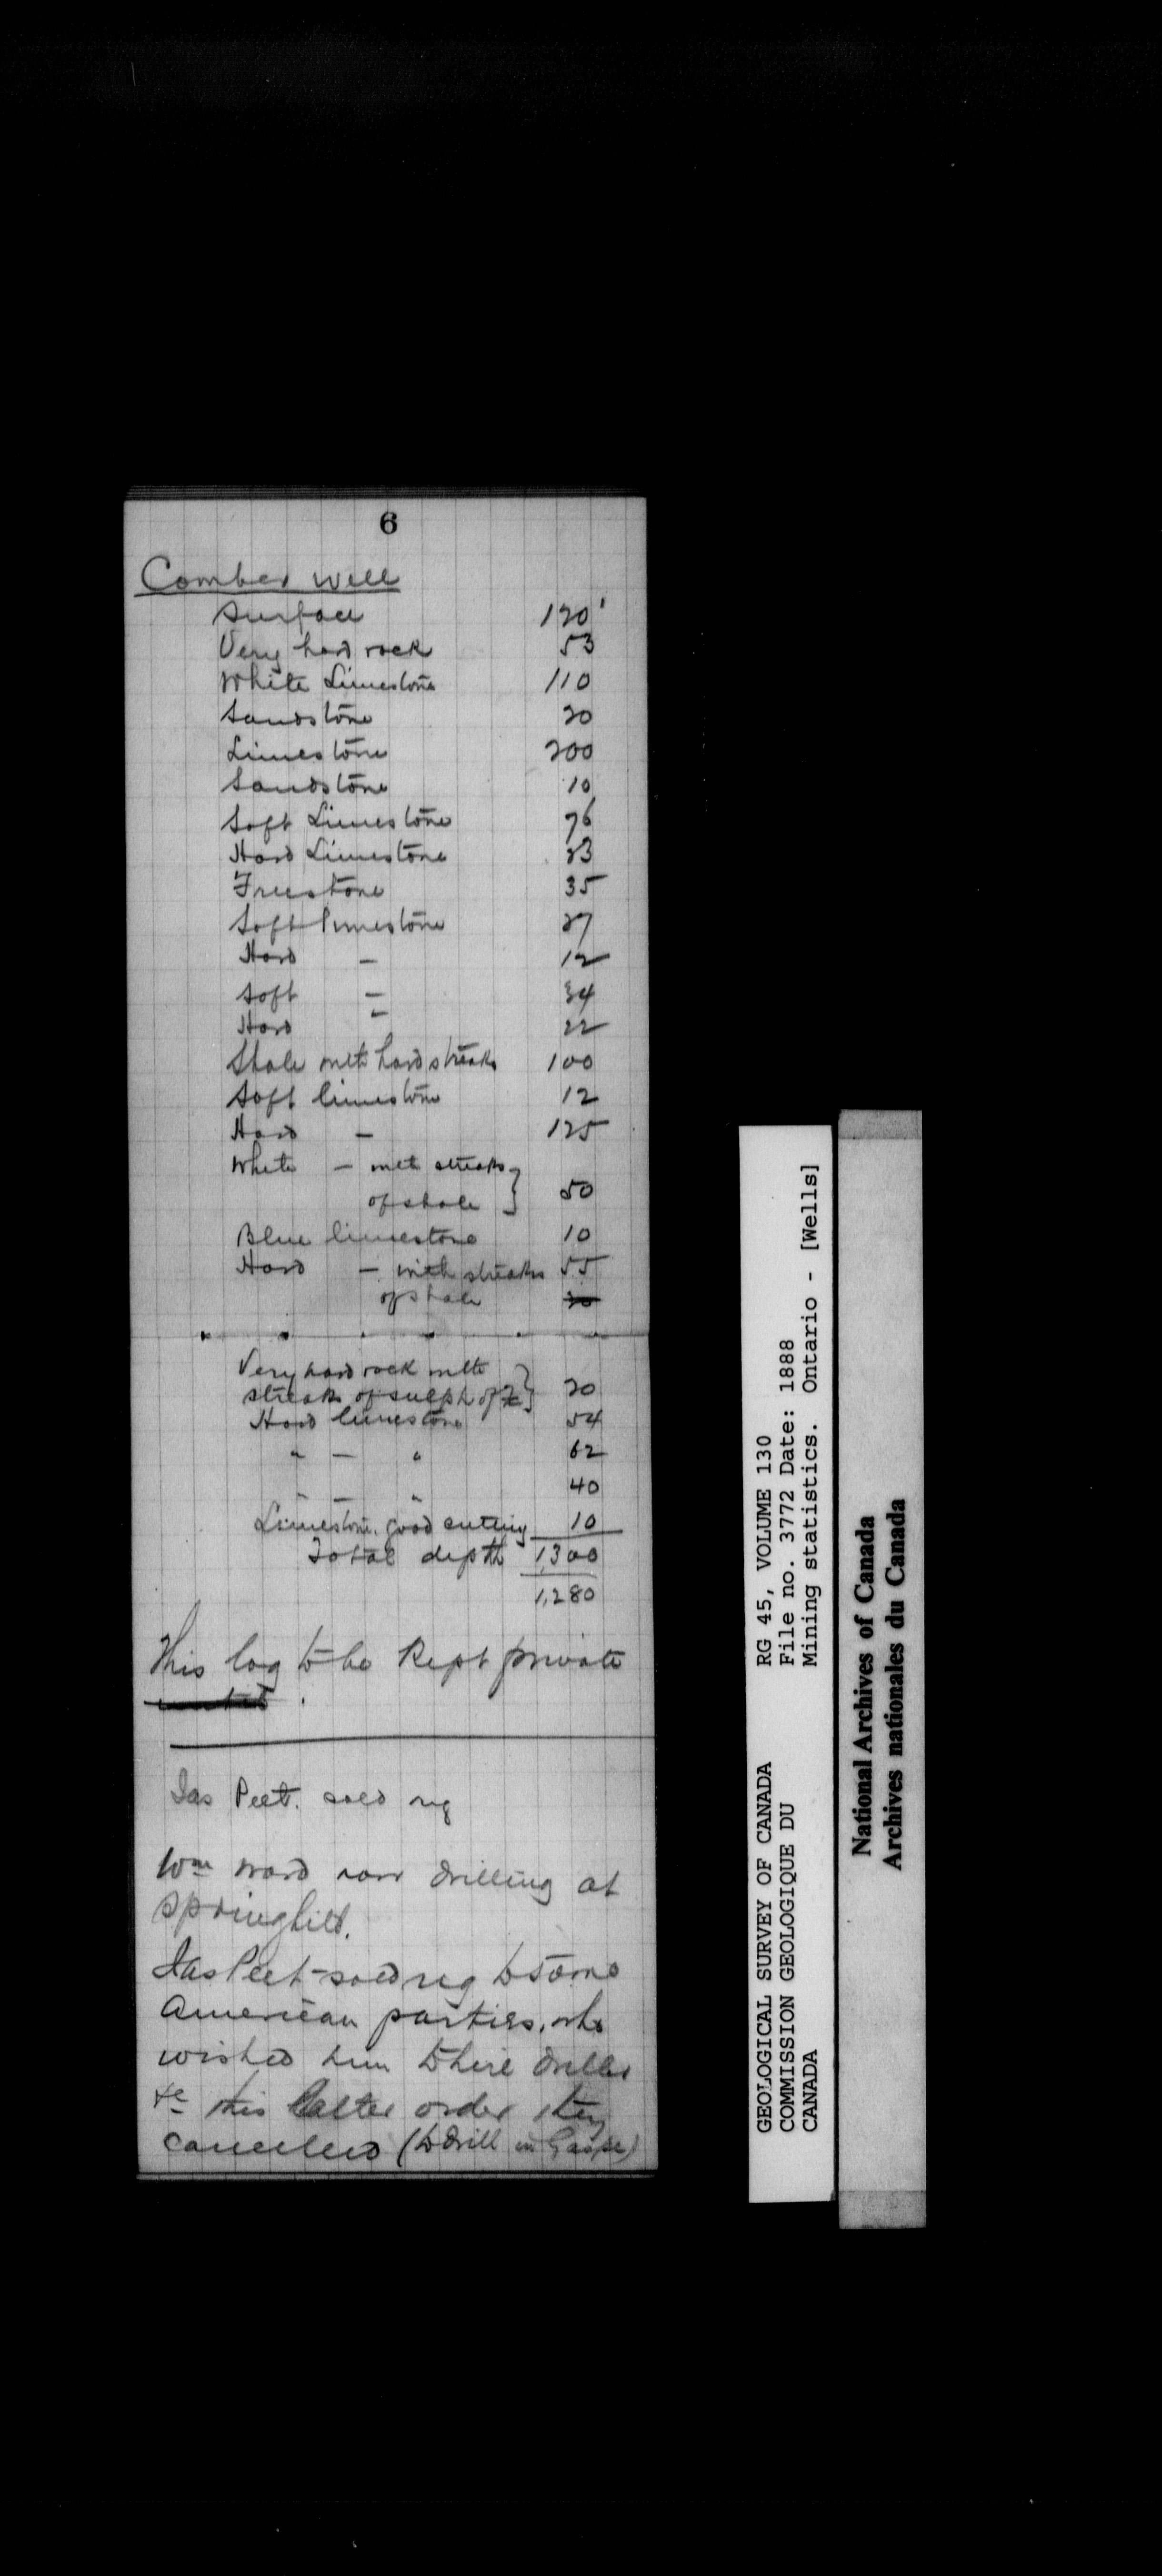 6
Comber well
Surface 120'
Very hard rock 53
White Limestone 110
Sandstone 20
Limestone 200
Sandstone 10
Soft Limestone 76
Hard Limestone 23
Freestone 35
Soft limestone 27
Hard – 12
Soft – 34
Hard " 22
Shale with hard streaks 100
Soft limestone 12
Hard – 125
White – with streaks
of shale } 50
Blue limestone 10
Hard – with streaks 55
of shale
Very hard rock with
streaks of sulph of } 20
Hard limestone 54
" – " 62
" – " 40
Limestone. good cutting 10
Total depth 1,300
1,280
This log to be Kept private
Jas Peet. sold rig
Wm Ward now drilling at
Springhill.
Jas Peet - sold rig to some
American parties, who
wished him to hire driller
&c this latter order they
cancelled (to drill in Gaspe)
GEOLOGICAL SURVEY OF CANADA
COMMISSION GEOLOGIQUE DU
CANADA
RG 45, VOLUME 130
File no. 3772 Date: 1888
Mining statistics. Ontario - [Wells]
National Archives of Canada
Archives nationales du Canada